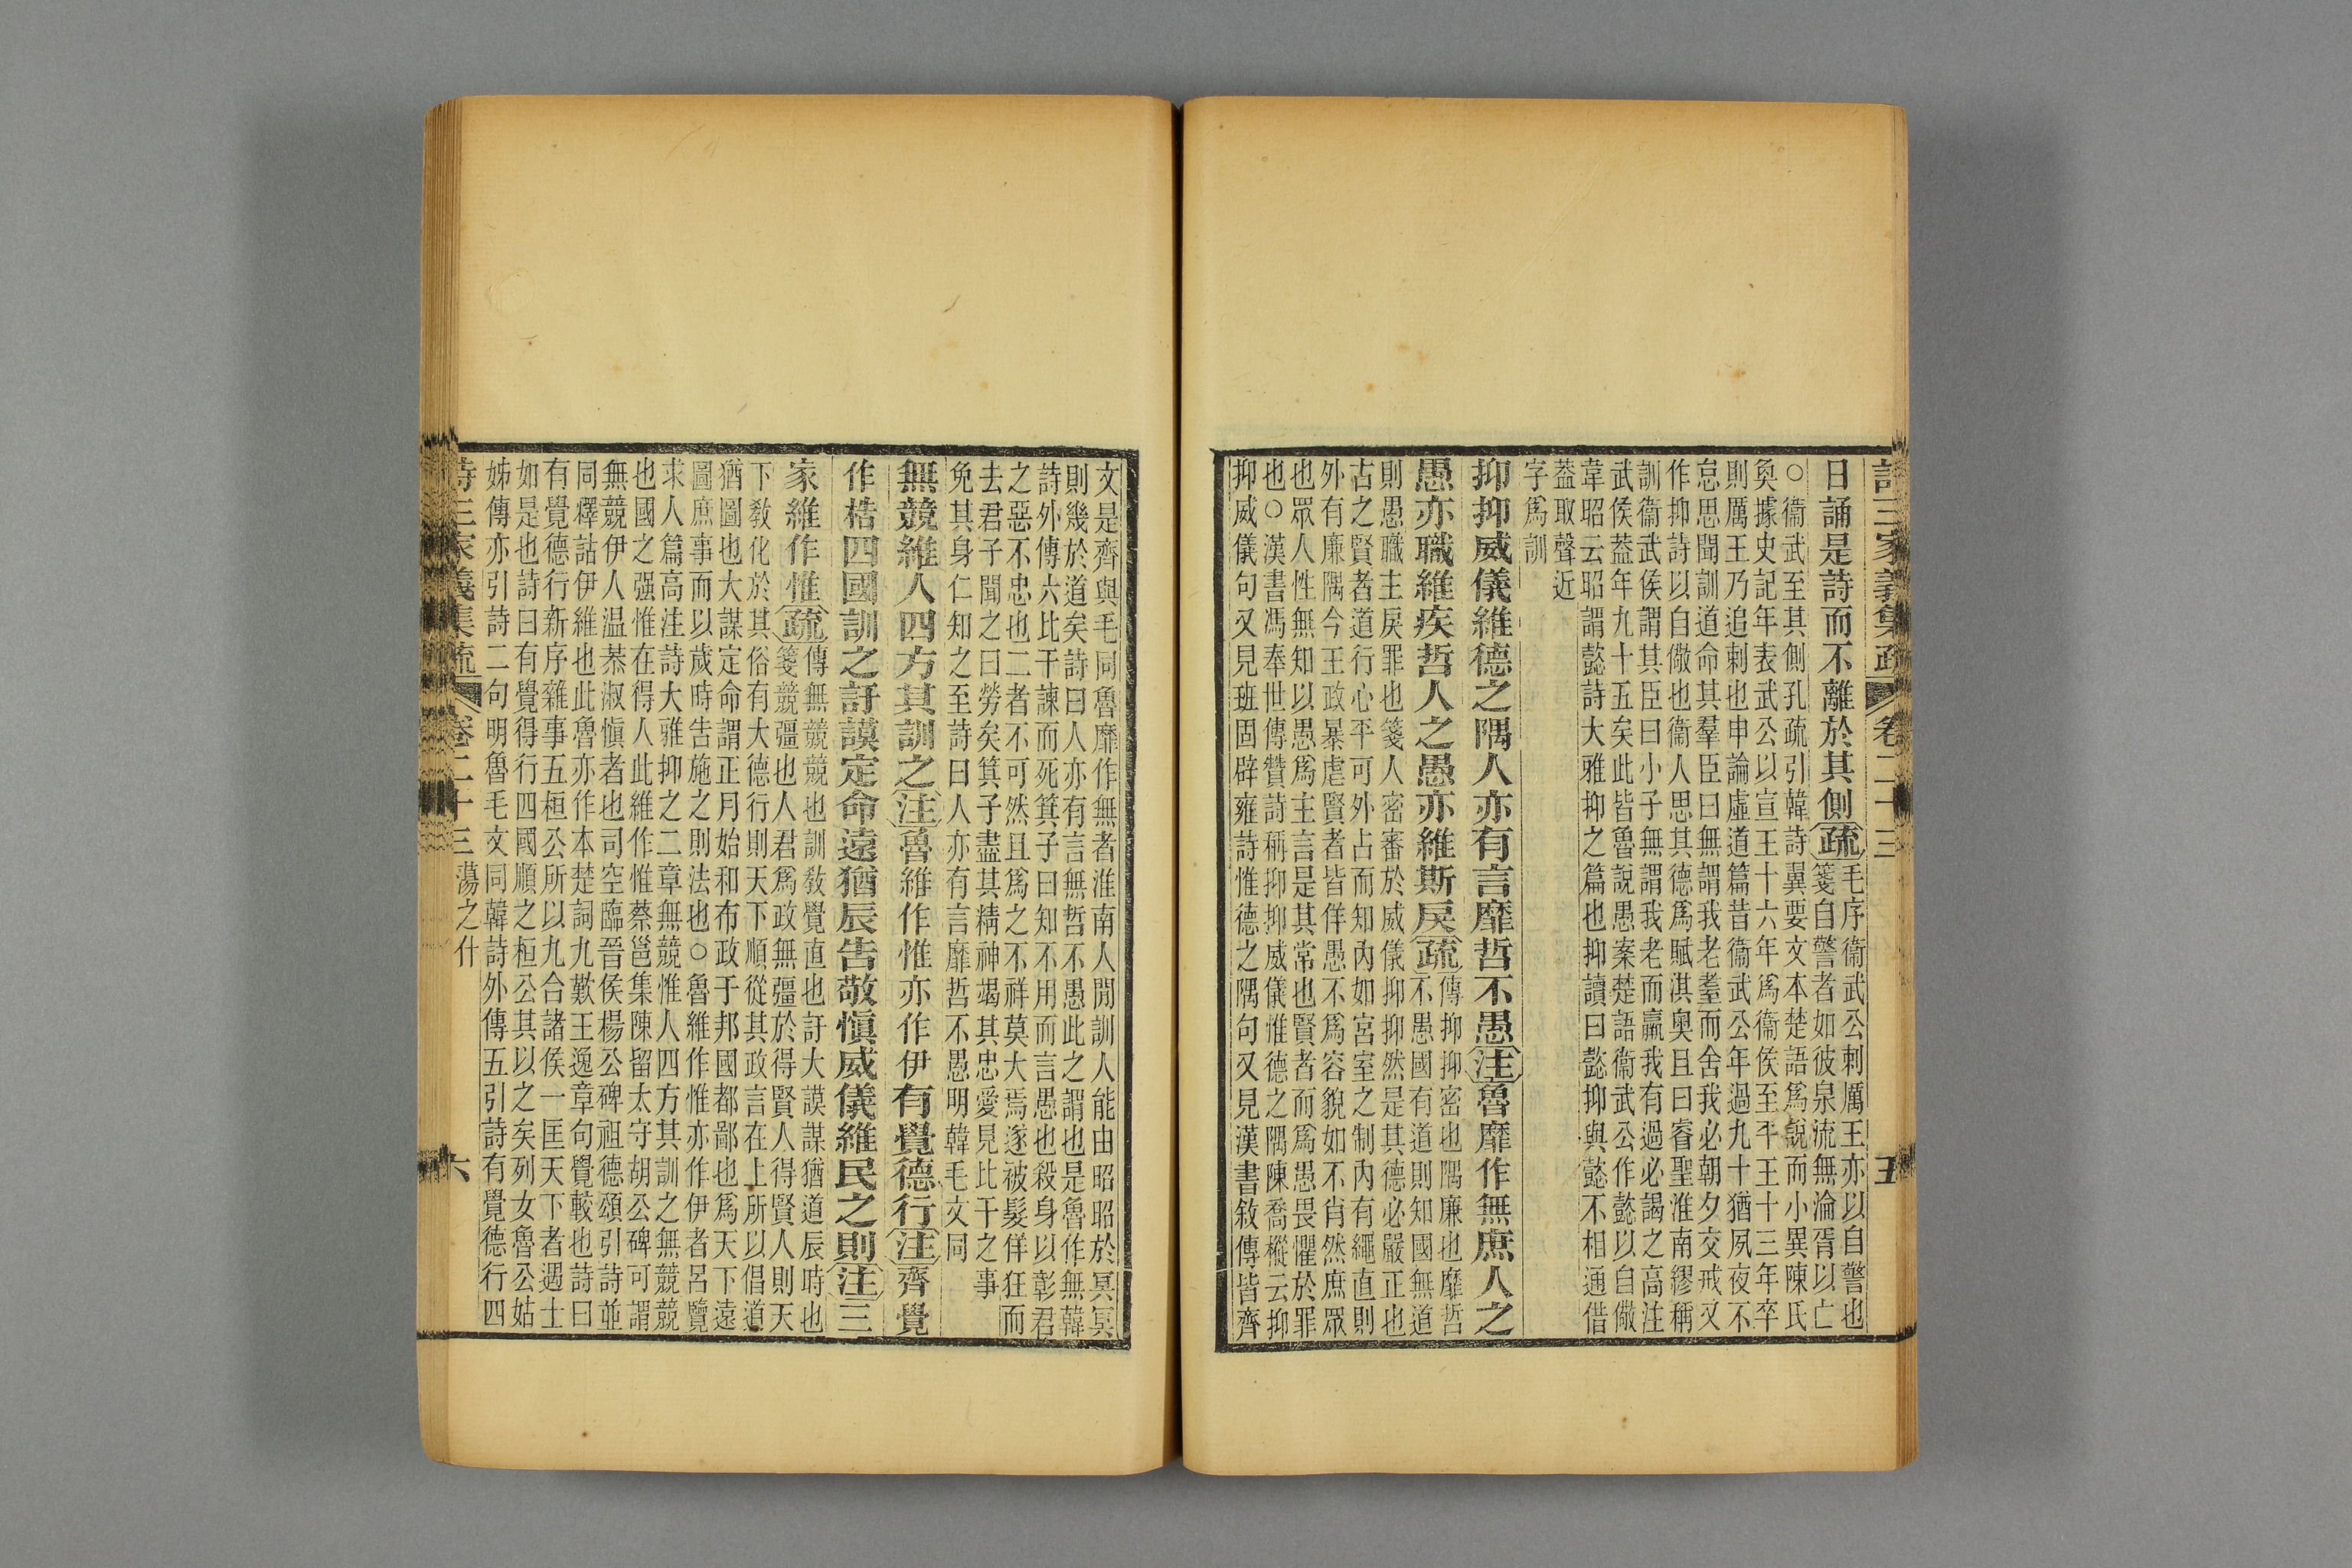 詩三家義集疏 卷二十三 五
日誦是詩而不離於其側疏毛序衞武公刺厲王亦以自警也
箋自警者如彼泉流無淪胥以亡
○衞武至其側孔疏引韓詩翼要文本楚語爲說而小異陳氏
奐據史記年表武公以宣王十六年爲衞侯至平王十三年卒
則厲王乃追刺也申論虛道篇昔衞武公年過九十猶夙夜不
怠思聞訓道命其羣臣曰無謂我老耄而舍我必朝夕交戒又
作抑詩以自儆也衞人思其德爲賦淇奧且曰睿聖淮南繆稱
訓衞武侯謂其臣曰小子無謂我老而羸我有過必謁之高注
武侯葢年九十五矣此皆魯說愚案楚語衞武公作懿以自儆
韋昭云昭謂懿詩大雅抑之篇也抑讀曰懿抑與懿不相通借
葢取聲近
字爲訓
抑抑威儀維德之隅人亦有言靡哲不愚注魯靡作無庶人之
愚亦職維疾哲人之愚亦維斯戾疏傳抑抑密也隅廉也靡哲
不愚國有道則知國無道
則愚職主戾罪也箋人密審於威儀抑抑然是其德必嚴正也
古之賢者道行心平可外占而知內如宮室之制內有繩直則
外有廉隅今王政暴虐賢者皆佯愚不爲容貌如不肖然庶眾
也眾人性無知以愚爲主言是其常也賢者而爲愚畏懼於罪
也○漢書馮奉世傳贊詩稱抑抑威儀惟德之隅陳喬樅云抑
抑威儀句又見班固辟雍詩惟德之隅句又見漢書敘傳皆齊
文是齊與毛同魯靡作無者淮南人閒訓人能由昭昭於冥冥
則幾於道矣詩曰人亦有言無哲不愚此之謂也是魯作無韓
詩外傳六比干諫而死箕子曰知不用而言愚也殺身以彰君
之惡不忠也二者不可然且爲之不祥莫大焉遂被髮佯狂而
去君子聞之曰勞矣箕子盡其精神竭其忠愛見比干之事
免其身仁知之至詩曰人亦有言靡哲不愚明韓毛文同
無競維人四方其訓之注魯維作惟亦作伊有覺德行注齊覺
作梏四國訓之訏謨定命遠猶辰告敬愼威儀維民之則注三
家維作惟疏傳無競競也訓敎覺直也訏大謨謀猶道辰時也
箋競彊也人君爲政無彊於得賢人得賢人則天
下敎化於其俗有大德行則天下順從其政言在上所以倡道
猶圖也大謀定命謂正月始和布政于邦國都鄙也爲天下遠
圖庶事而以歲時告施之則法也○魯維作惟亦作伊者呂覽
求人篇高注詩大雅抑之二章無競惟人四方其訓之無競競
也國之强惟在得人此維作惟蔡邕集陳留太守胡公碑可謂
無競伊人温恭淑愼者也司空臨晉侯楊公碑祖德頌引詩並
同釋詁伊維也此魯亦作本楚詞九歎王逸章句覺較也詩曰
有覺德行新序雜事五桓公所以九合諸侯一匡天下者遇士
如是也詩曰有覺得行四國順之桓公其以之矣列女魯公姑
姊傳亦引詩二句明魯毛文同韓詩外傳五引詩有覺德行四
詩三家義集疏 卷二十三 蕩之什 六